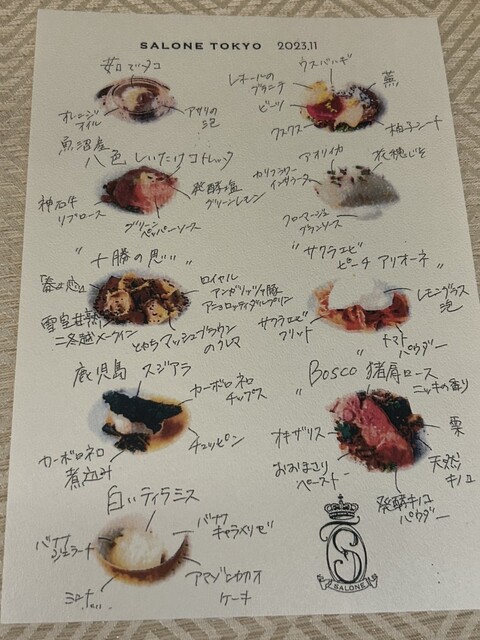 SALONE TOKYO 2023.11
茹でタコ
オレンジ
オイル
アサリの
泡
ウスバハギ
レホールの
グラニテ
ビーツ
クスクス
蕪
柚子シート
魚沼産
八色しいたけコトレッタ
神石牛
リブロース
グリーン
ペッパーソース
発酵塩
グリーンレモン
アオリイカ
カリフラワー
インサラータ
フロマージュ
ブランソース
穂じそ
"十勝の思い"
雪室熟
二冬越メークイン
ロイヤル
マンガリッツァ豚
アニョロッティダルプリン
とかちマッシュブラウン
のクレマ
"サクラエビ
ピーチ アリオーネ"
レモングラス
泡
サクラエビ
フリット
トマト
パウダー
鹿児島 スジアラ
カーボロネロ
チップス
カーボロネロ
煮込み
チュッピン
"Bosco 猪肩ロース"
ニッキの香り
オキザリス
おおまさり
ペースト
栗
天然
キノコ
発酵キノコ
パウダー
白いティラミス
バナナ
ジェラート
バナナ
キャラメリゼ
アマゾンカカオ
ケーキ
SALONE